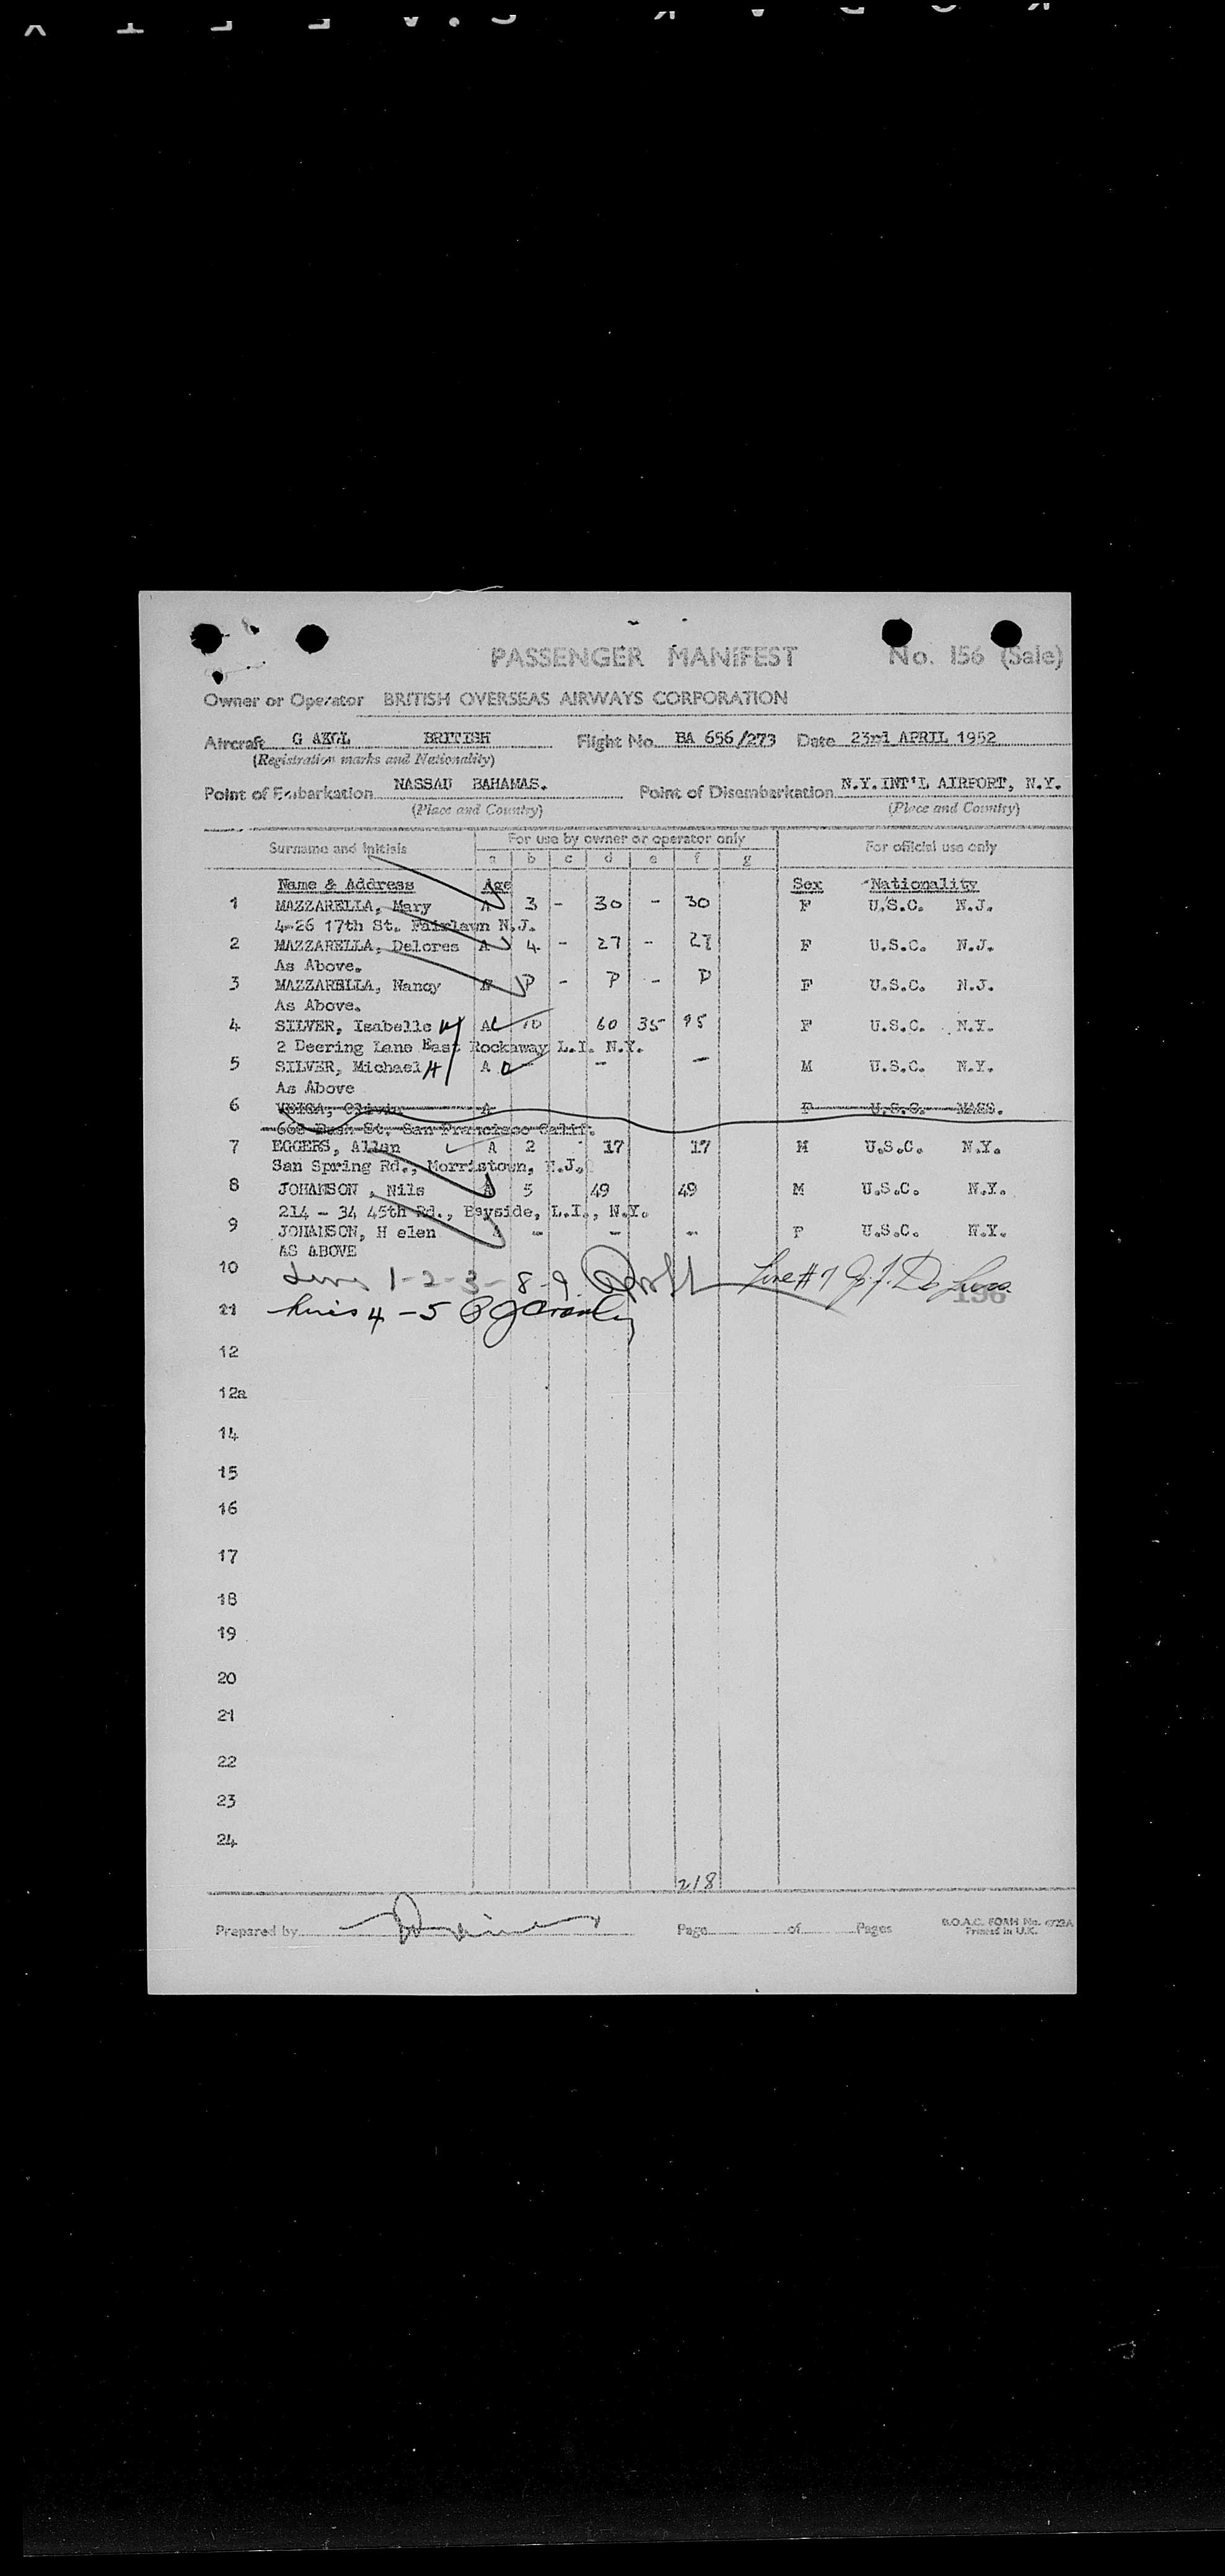 PASSENGER MANIFEST No. 156 (Sale)
Owner or Operator BRITISH OVERSEAS AIRWAYS CORPORATION
Aircraft G BRITISH Flight No. BA 656/273 Date 23rd APRIL 1952
(Registration marks and Nationality)
Point of Embarkation NASSAU BAHAMAS. Point of Disembarkation N.Y.INT'L AIRPORT, N.Y.
(Place and Country) (Place and Country)
Surname and initials For use by owner or operator only For official use only
a b c d e f g
Name & Address Age Sex Nationality
1 MAZZARELLA, Mary A 3 - 30 - 30 F U.S.C. N.J.
4-26 17th St. Fairlawn N.J.
2 MAZZARELLA, Delores A 4 - 27 - 27 F U.S.C. N.J.
As Above.
3 MAZZARELLA, Nancy P - P - P F U.S.C. N.J.
As Above.
4 SILVER, Isabelle A 10 60 35 95 F U.S.C. N.Y.
2 Deering Lane East Rockaway L.I. N.Y.
5 SILVER, Michael A - - M U.S.C. N.Y.
As Above
6 A F U.S.C. MASS.
Bush St. San Francisco Calif.
7 EGGERS, Allan A 2 17 17 M U.S.C. N.Y.
San Spring Rd., Morristown, N.J.
8 JOHANSON , Nils A 5 49 49 M U.S.C. N.Y.
214 - 34 45th Rd., Bayside, L.I., N.Y.
9 JOHANSON, H elen A - - - F U.S.C. N.Y.
AS ABOVE
10 Lines 1-2-3-8-9 Line # 7
156
11 Lines 4-5
12
12a
14
15
16
17
18
19
20
21
22
23
24
218
Prepared by Page of Pages
B.O.A.C. FORM No.
Printed in U.K.